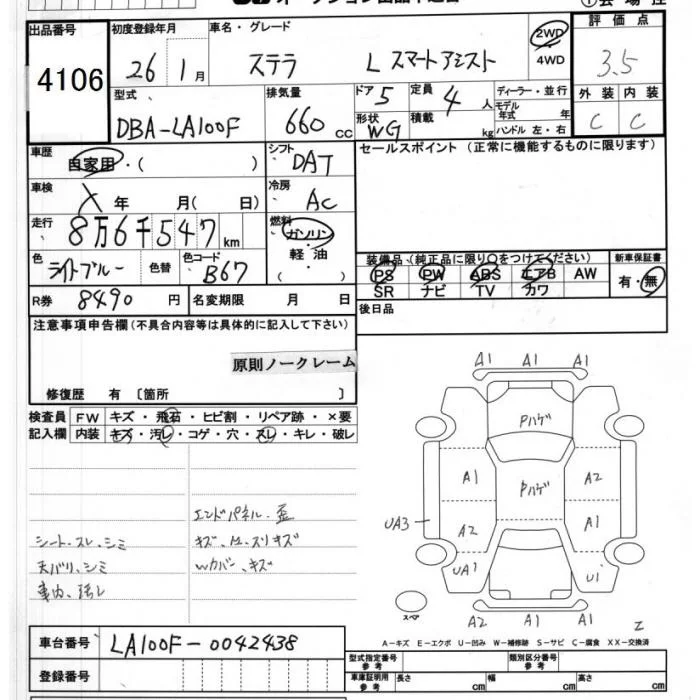 オークション出品申込書
会 場 控
出品番号
4106
初度登録年月
26年 1月
車名・グレード
ステラ L スマートアシスト
2WD
4WD
評 価 点
3.5
外 装 内 装
C C
型式
DBA-LA100F
排気量
660 cc
ドア 5
形状 WG
定員 4 人
積載 kg
ディーラー・並行
モデル年式 年
ハンドル 左・右
車歴
自家用・( )
シフト
DAT
セールスポイント (正常に機能するものに限ります)
車検
X 年 月( 日)
冷房
AC
走行
8万6千547km
燃料
ガソリン
軽 油
( )
色
ライトブルー
色替
色コード
B67
装備品 (純正品に限り○をつけてください)
PS PW ABS エアB AW
SR ナビ TV カワ
新車保証書
有・無
R券 8490 円
名変期限 月 日
後日品
注意事項申告欄(不具合内容等は具体的に記入して下さい)
原則ノークレーム
修復歴 有 〔箇所 〕
検査員
記入欄
FW キズ・飛石・ヒビ割・リペア跡・×要
内装 キズ・汚レ・コゲ・穴・スレ・キレ・破レ
エンドパネル・歪
シート・スレ、シミ
キズ、ム・スリキズ
天バリ、シミ
Wカバー、キズ
車内、汚レ
A1 A1 A1
Pハゲ
A1 Pハゲ A2
UA3
A2 A1
UA1 U1
スペア
A2 A1 A1
A-キズ E-エクボ U-凹み W-補修跡 S-サビ C-腐食 XX-交換済
車台番号
LA100F-0042438
登録番号
型式指定番号
参 考
類別区分番号
参 考
車庫証明用
参 考
長さ cm
幅 cm
高さ cm